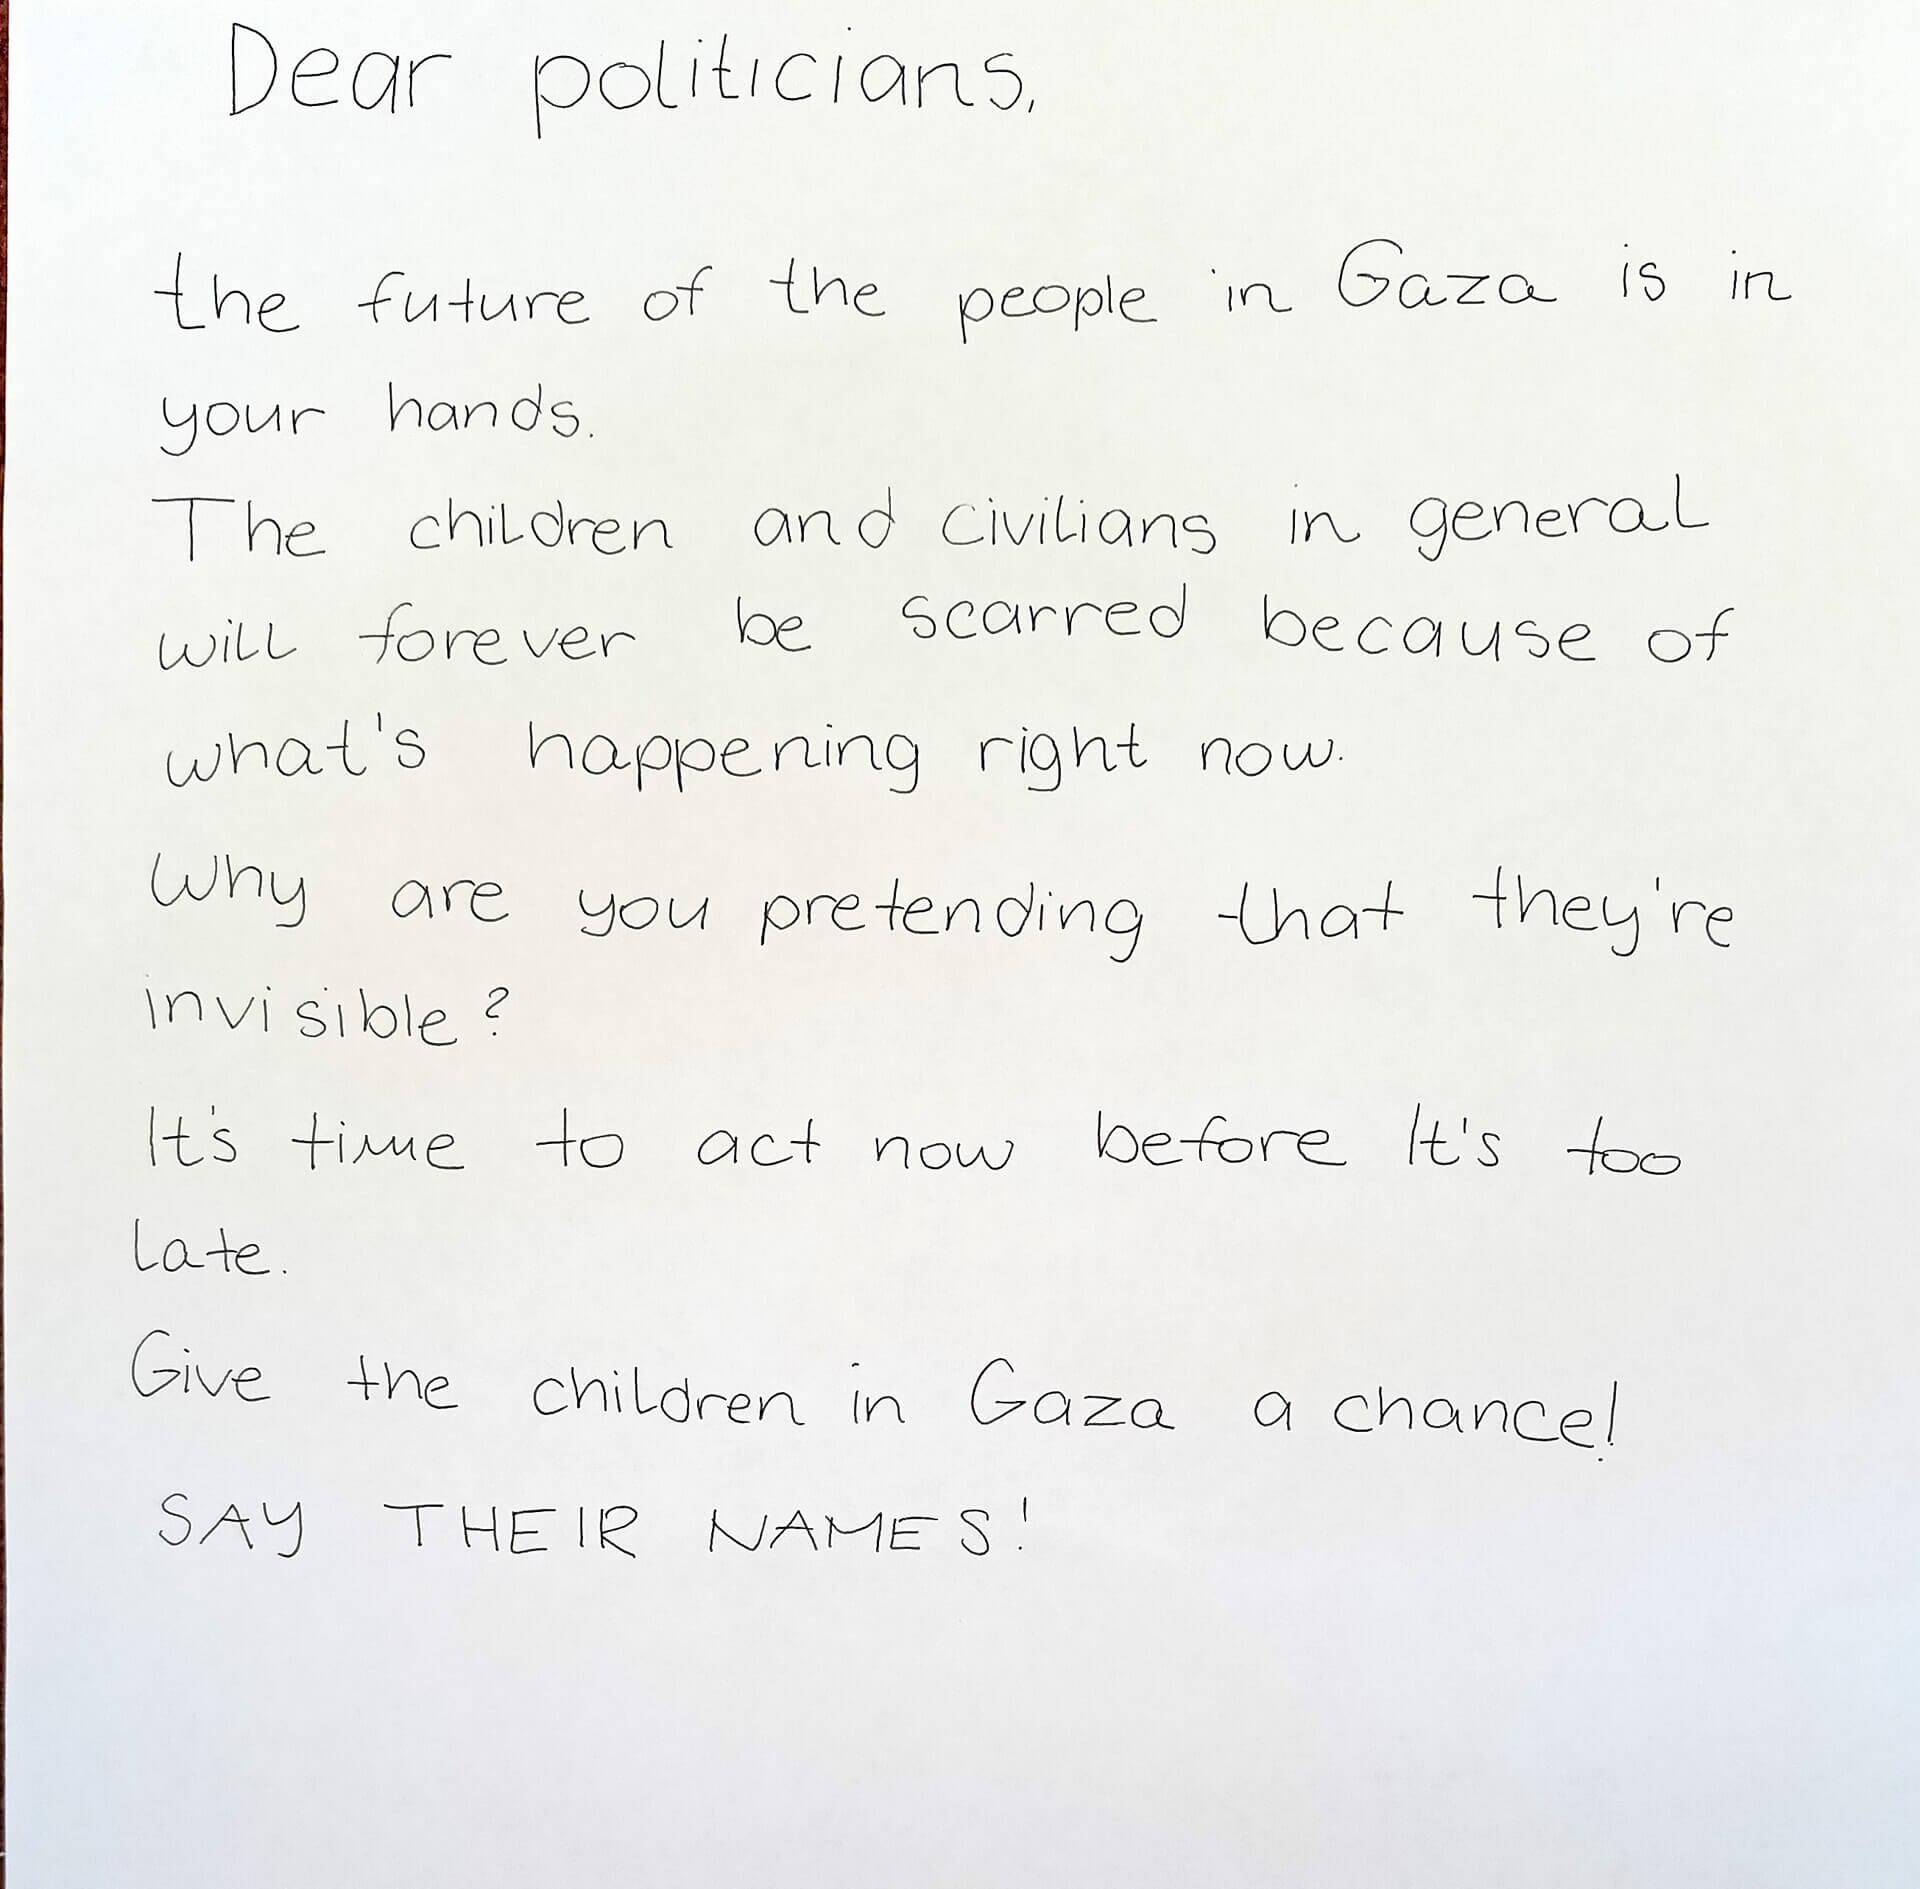 Dear politicians,
the future of the people in Gaza is in
your hands.
The children and civilians in general
will forever be scarred because of
what's happening right now.
Why are you pretending that they're
invisible?
It's time to act now before It's too
late.
Give the children in Gaza a chance!
SAY THEIR NAMES!